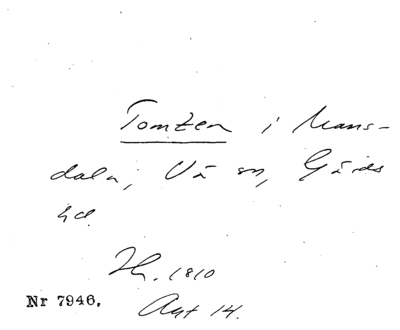 Tomten i Mans-
dala, Vå sn, Gärds
hd.
Th. 1810
Nr 7946. Akt 14.